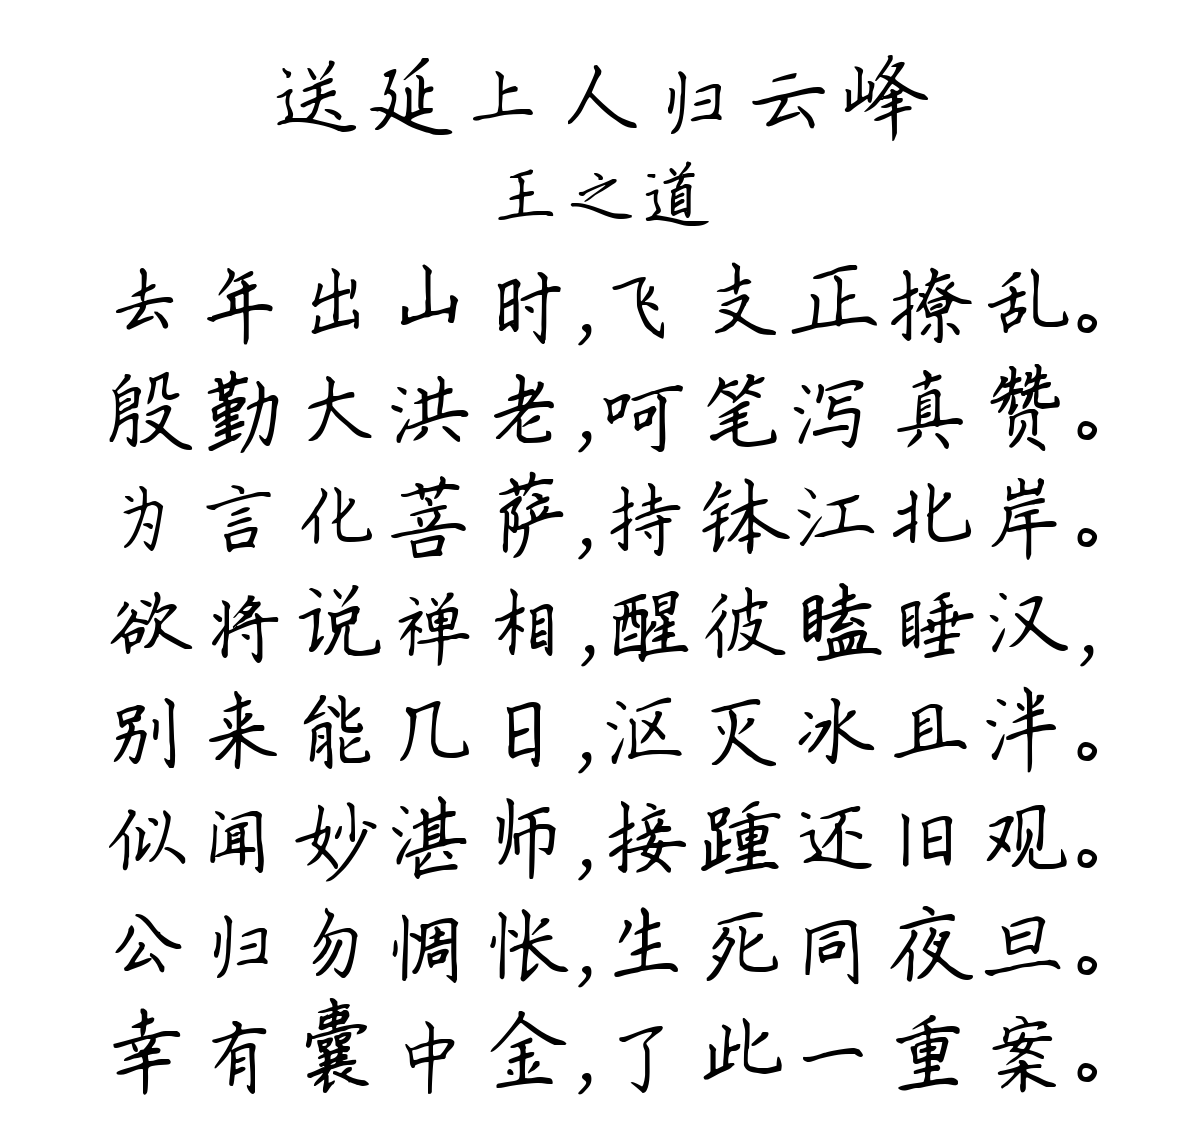 送延上人归云峰
王之道
去年出山时,飞支正撩乱。
殷勤大洪老,呵笔泻真赞。
为言化菩萨,持钵江北岸。
欲将说禅相,醒彼瞌睡汉,
别来能几日,沤灭冰且泮。
似闻妙湛师,接踵还旧观。
公归勿惆怅,生死同夜旦。
幸有囊中金,了此一重案。